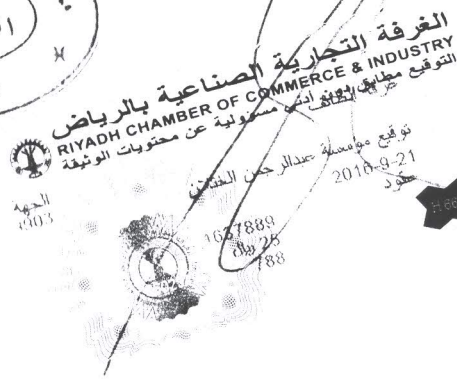 الغرفة التجارية الصناعية بالرياض
RIYADH CHAMBER OF COMMERCE & INDUSTRY
التوقيع مطابق دون أدنى مسؤولية عن محتويات الوثيقة
توقيع مؤسسة عبدالرحمن
2016-9-21
الجهة
1903
1637889
25 ريال
788
H66